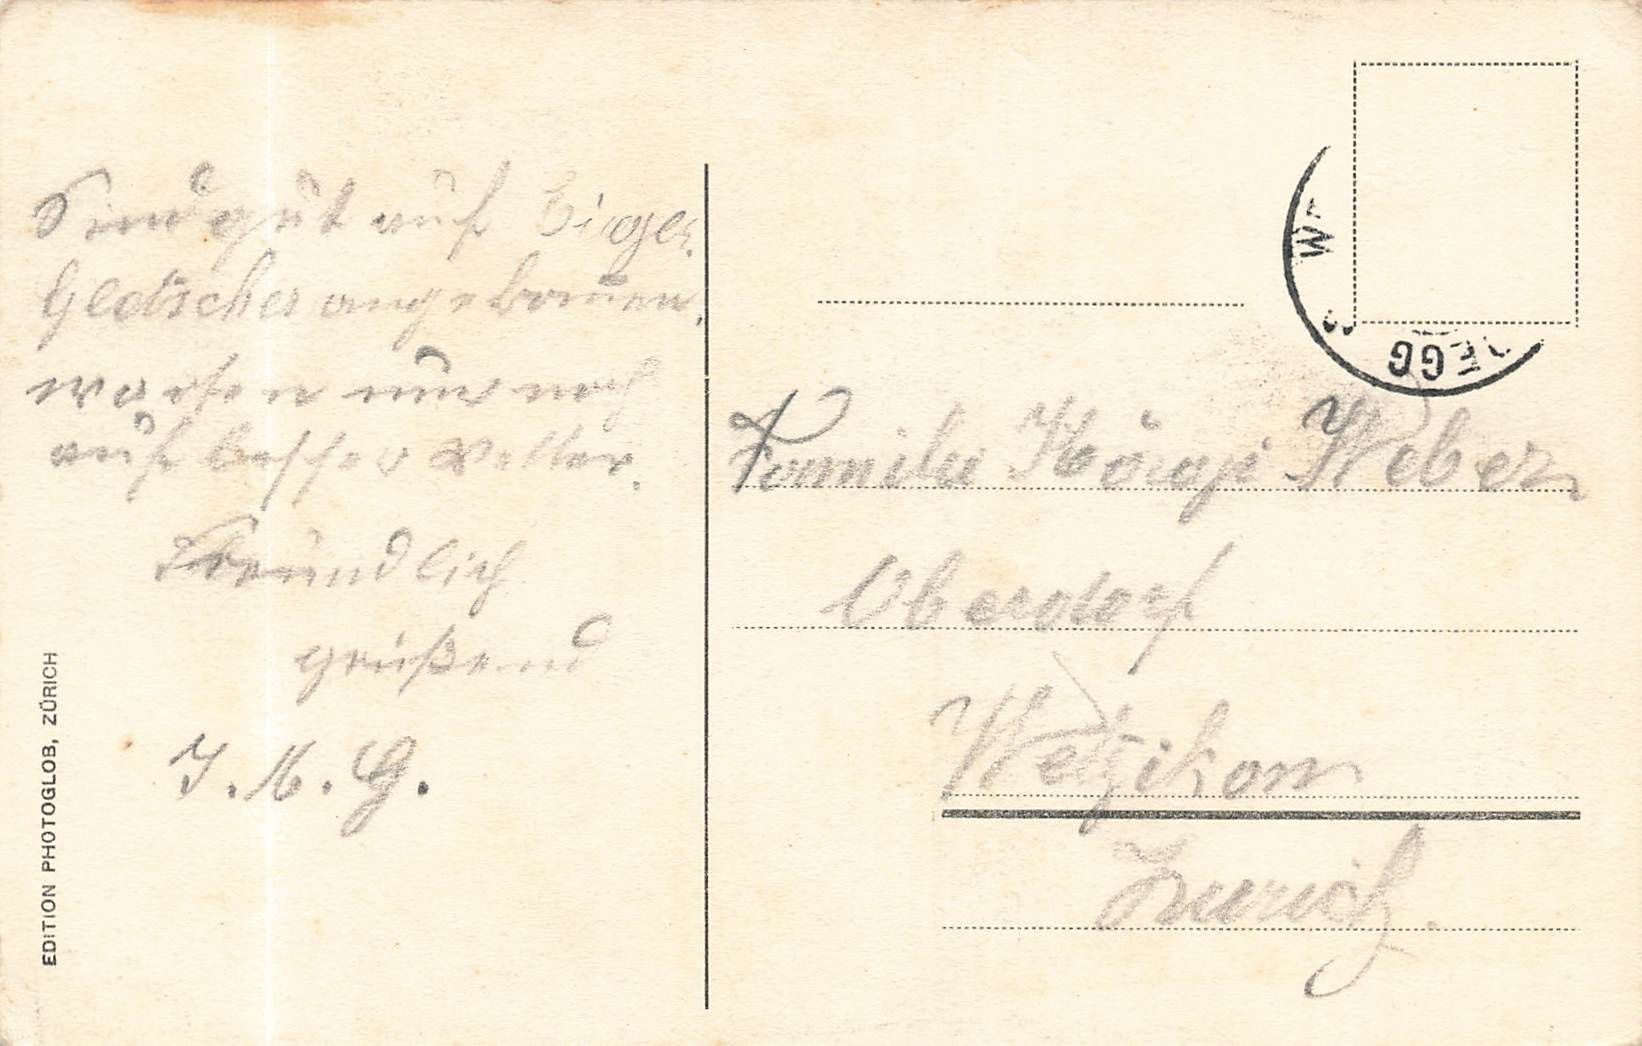 Sind gut auf Eiger
Gletscher angekom̅en,
warten nur noch
auf besser Wetter.
Freundlich
grüßend
J. B. G.
EDITION PHOTOGLOB, ZÜRICH
Familie Weber
Oberdorf
Wetzikon
Zuerich.
EGG